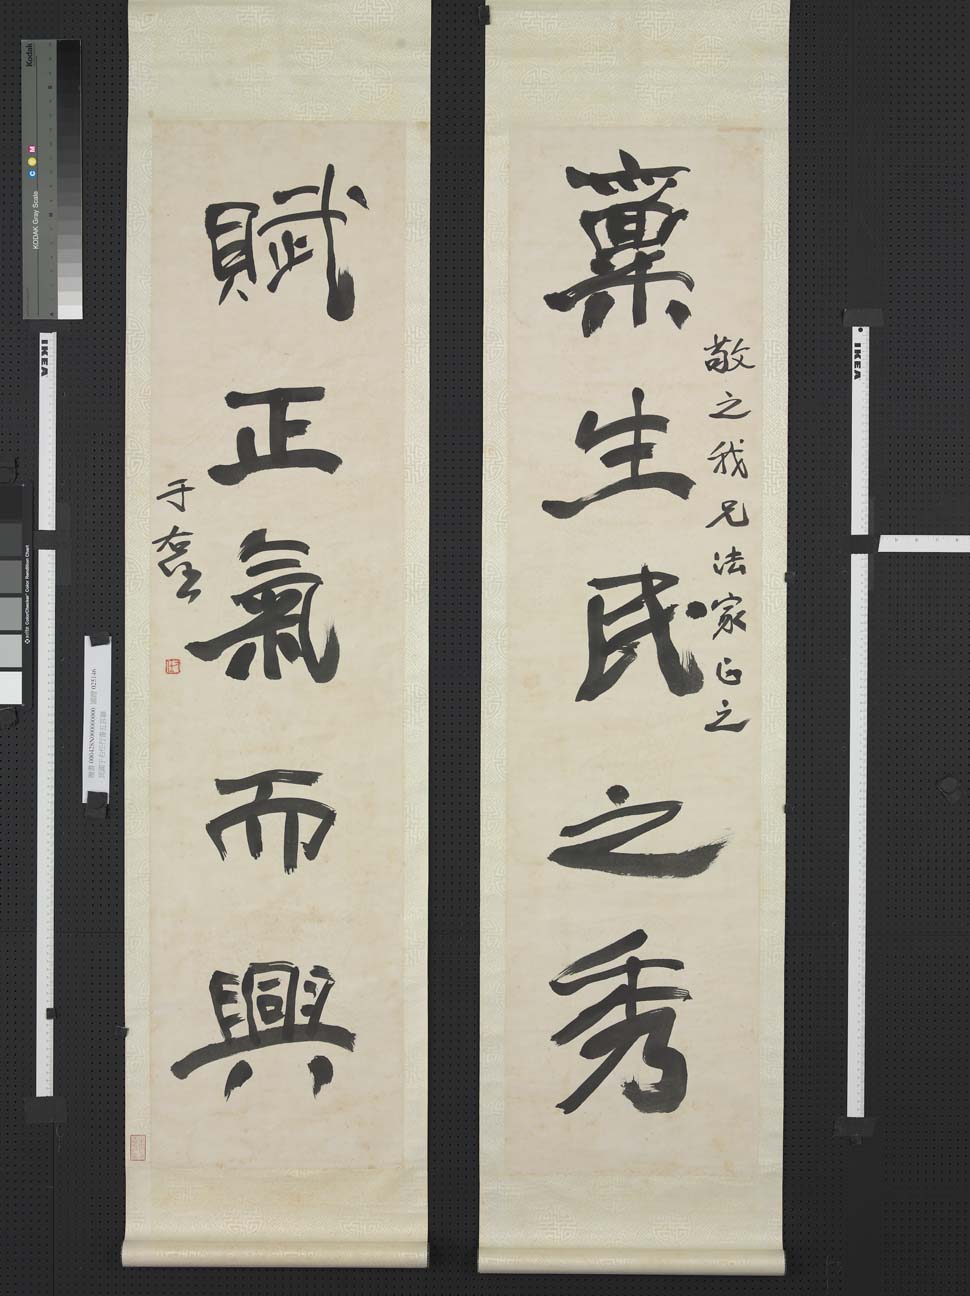 稟生民之秀
敬之我兄法家正之
賦正氣而興
于右任
Kodak
KODAK Gray Scale
C Y M
IKEA
IKEA